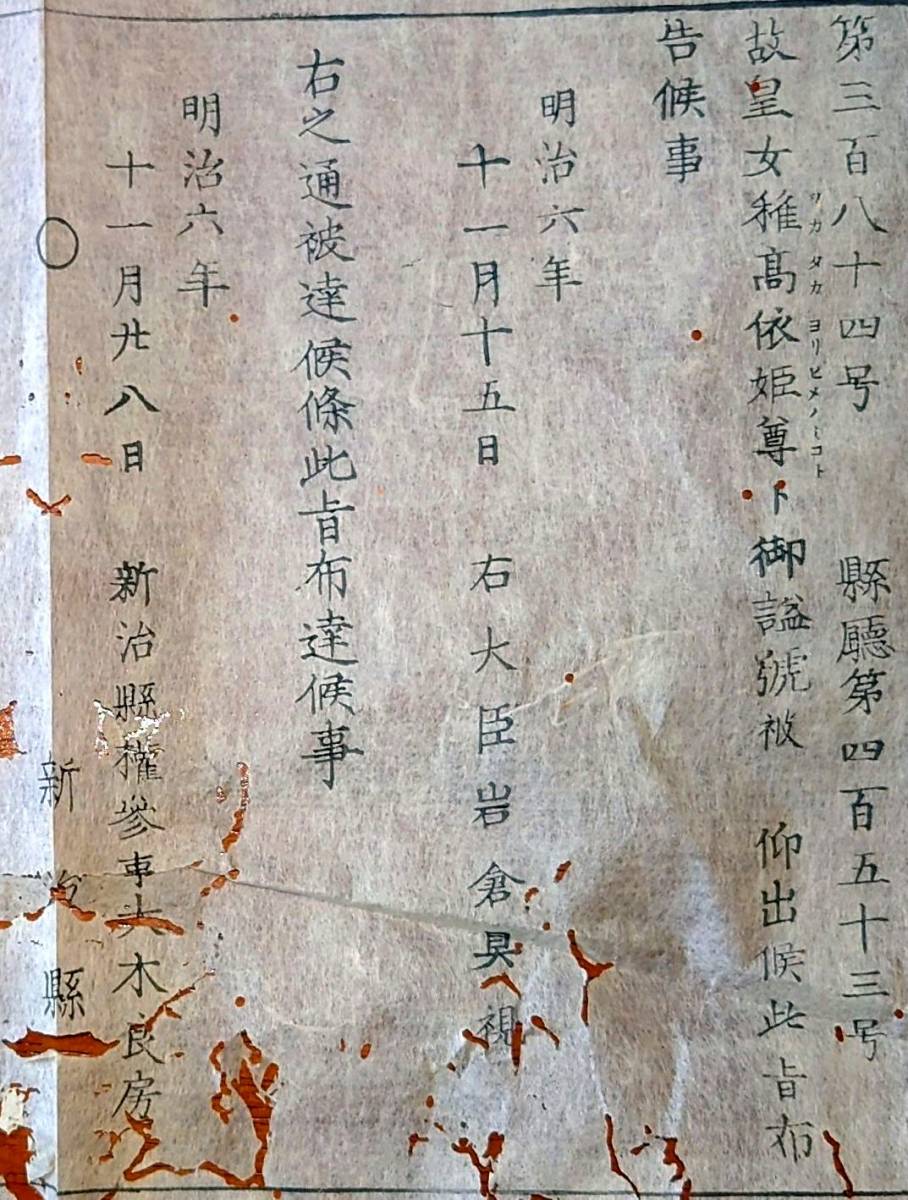 第三百八十四号　縣廳第四百五十三号
故皇女稚高依姫尊ト御諡號被　仰出候此旨布
ワカタカヨリヒメノミコト
告候事
明治六年
十一月十五日　右大臣岩倉具視
右之通被達候條此旨布達候事
明治六年
十一月廿八日　新治縣權參事大木良房
新治縣